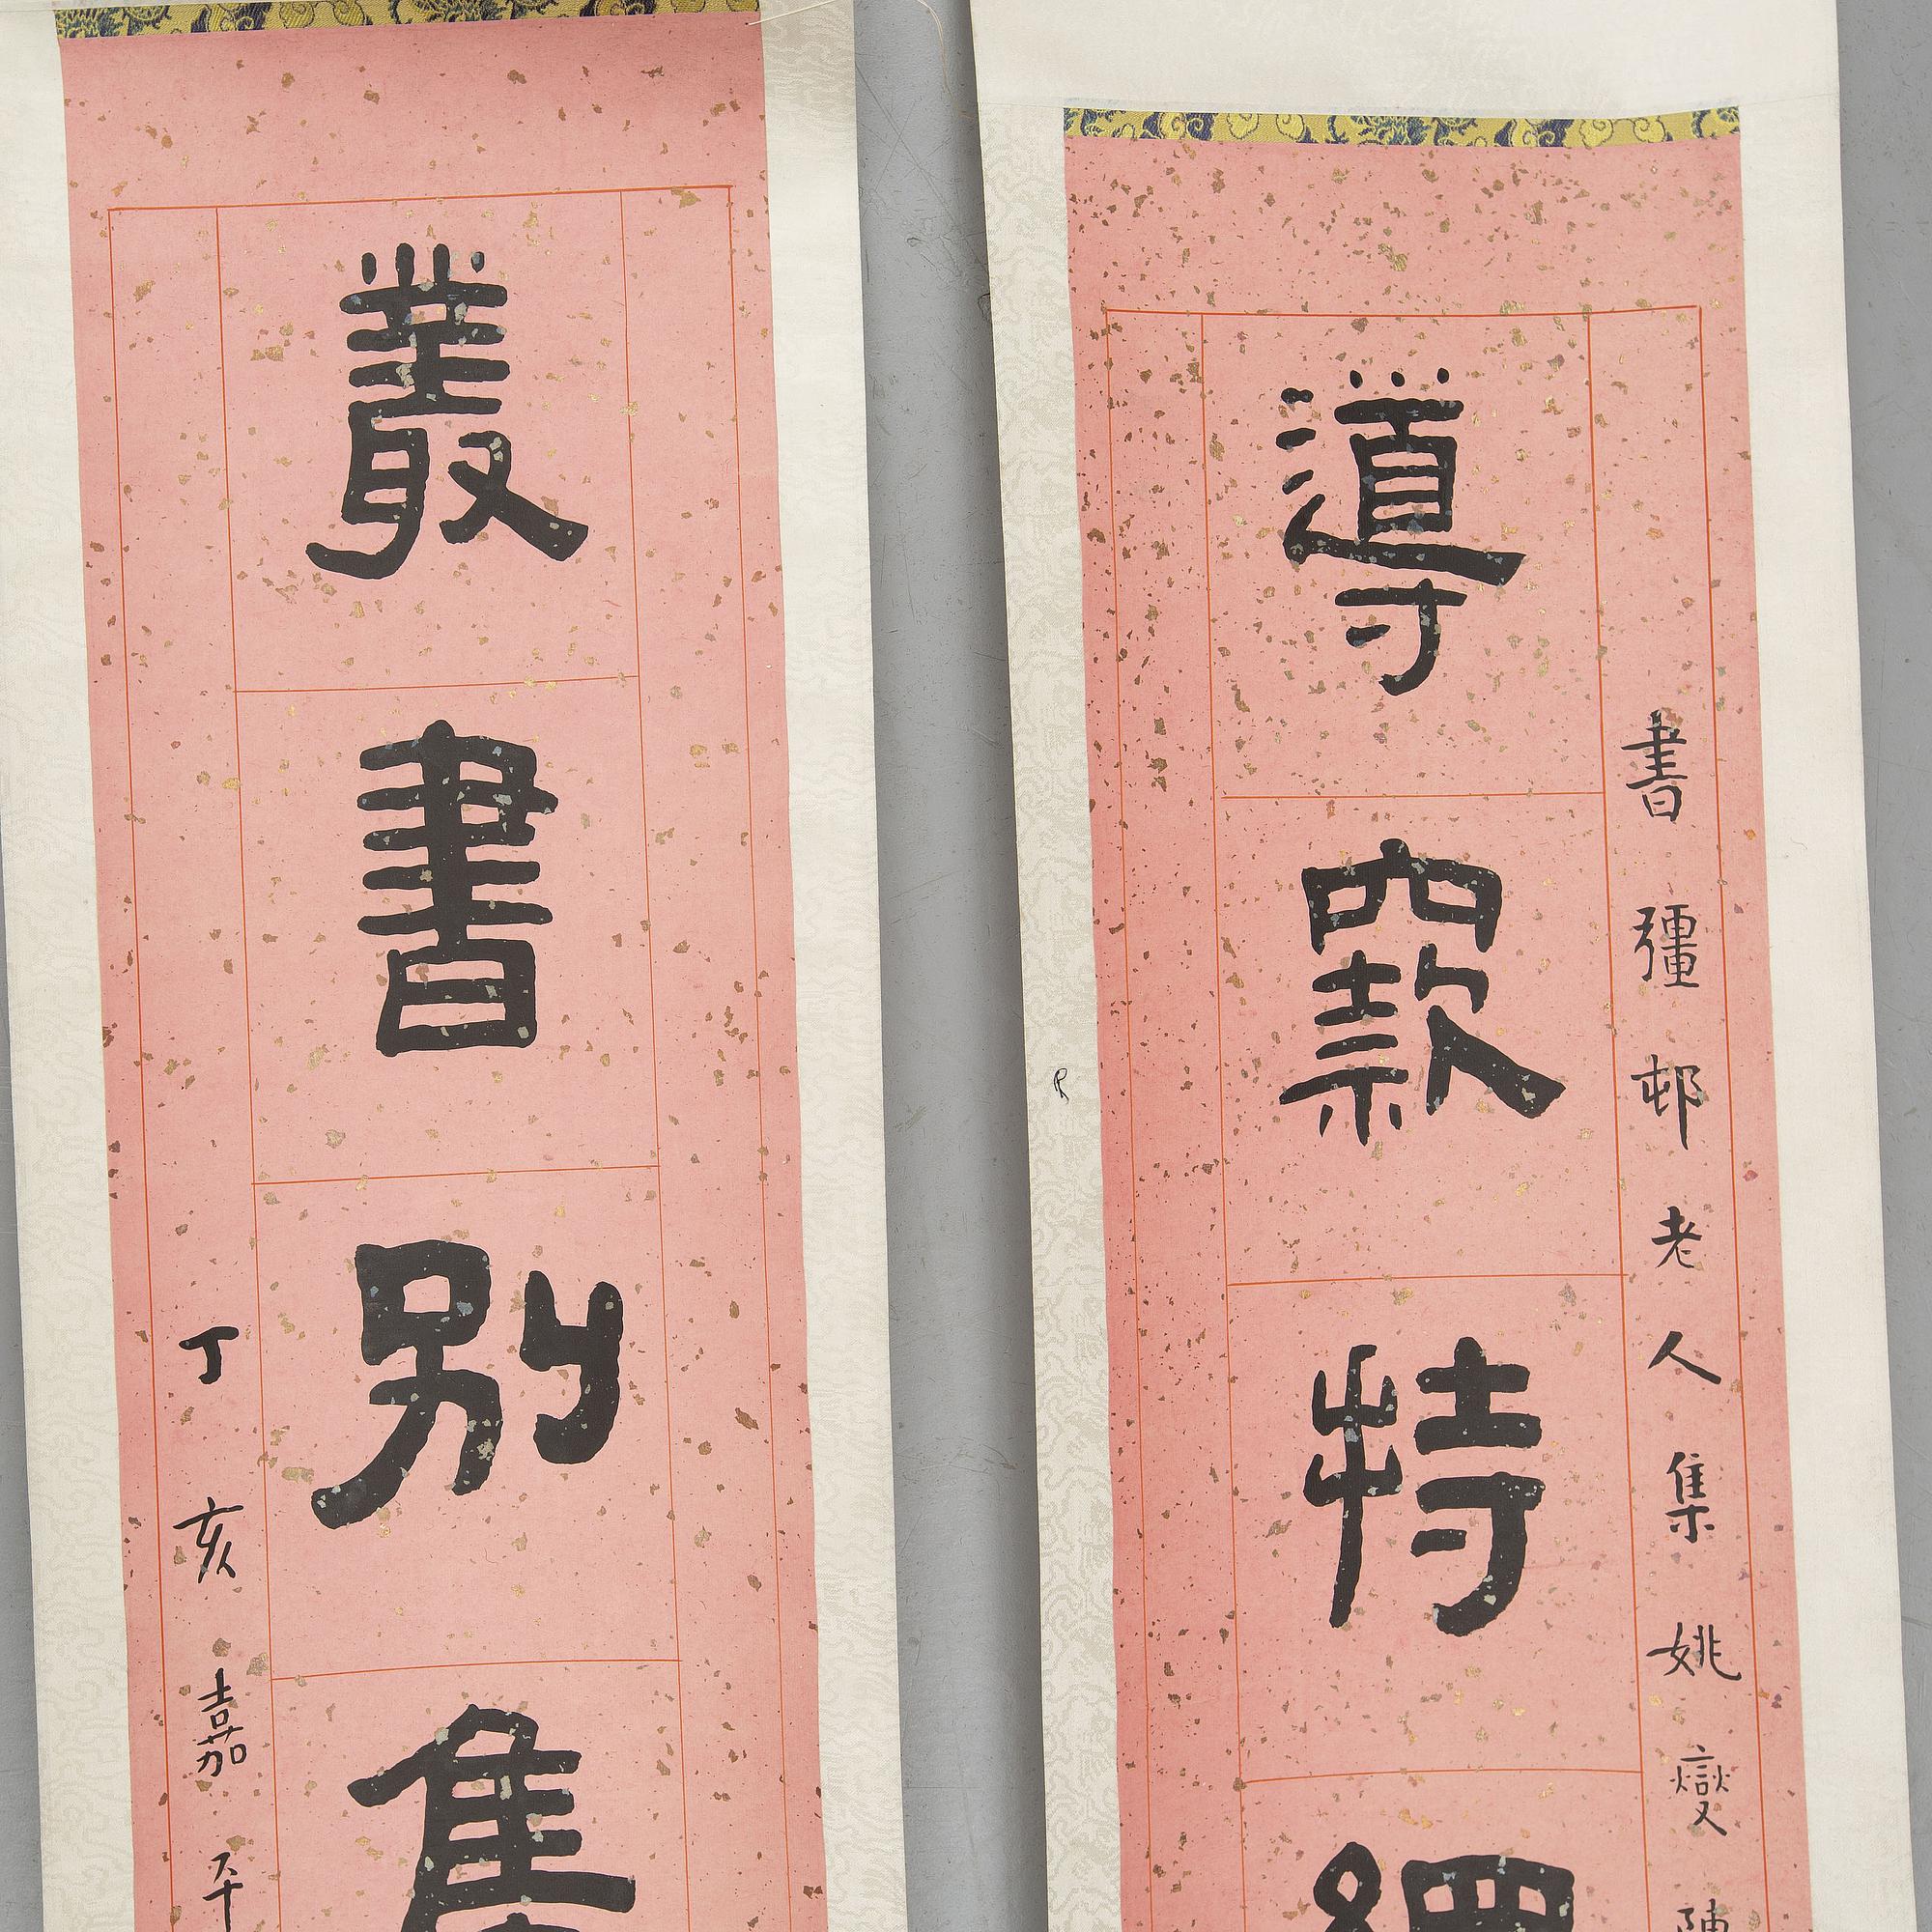 書彊邨老人集姚燮陳
導窾特
叢書別集
丁亥嘉平